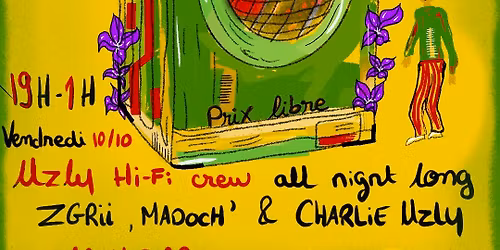 Prix libre
19H-1H
Vendredi 10/10
Uzly Hi-Fi crew all night long
ZGRii , MADOCH' & CHARLiE Uzly